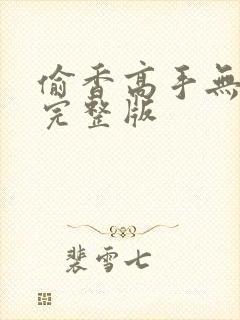 偷香高手無
完整版
裴雪七